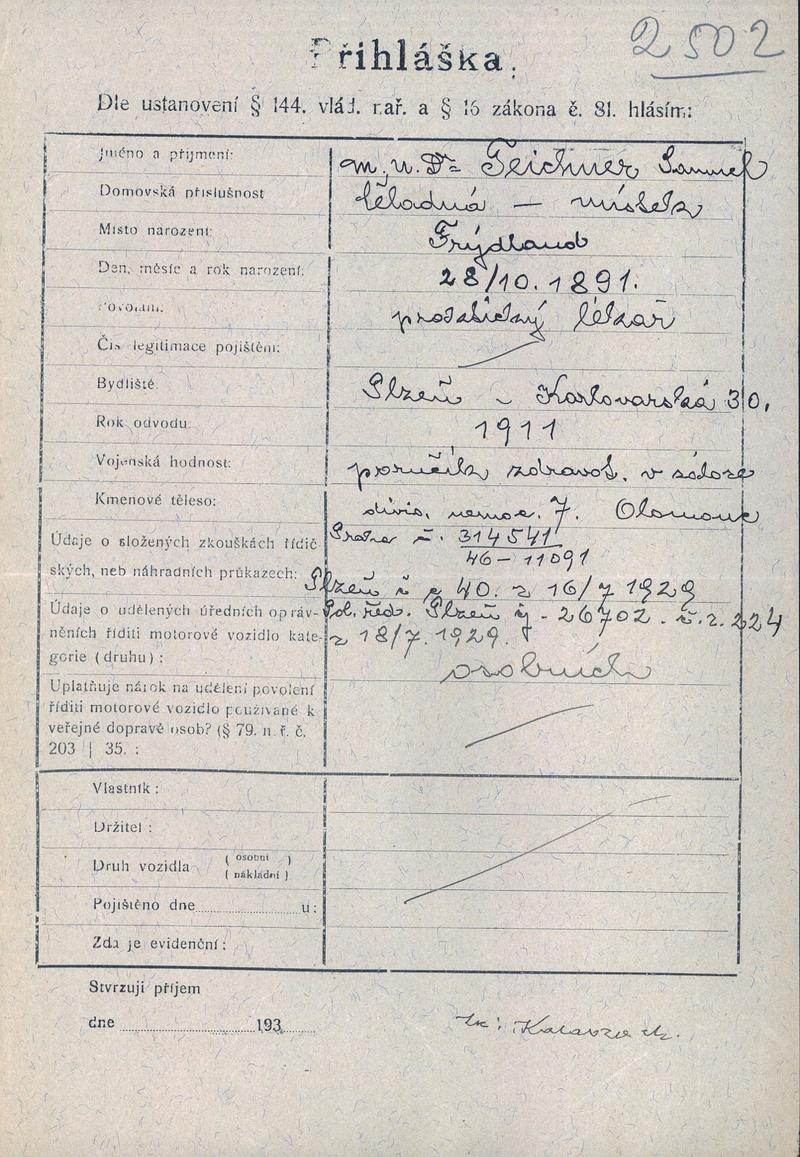 2502
Přihláška.
Dle ustanovení § 144. vlád. nař. a § 16 zákona č. 81. hlásím:
Jméno a příjmení: m. u. Dr Teichner Samuel
Domovská příslušnost Čeladná — místek
Místo narození: Frýdland
Den, měsíc a rok narození: 28/10. 1891.
Povolání: praktický lékař
Čís legitimace pojištění:
Bydliště: Plzeň - Karlovarská 30.
Rok odvodu: 1911
Vojenská hodnost: poručík zdravot. v záloze
Kmenové těleso: divis. nemoc. 7. Olomouc
Údaje o složených zkouškách řidič- Praha č. 314541
46-11091
ských, neb náhradních průkazech: Plzeň 40. z 16/7 1929
Údaje o udělených úředních opráv- Pol. řed. Plzeň čj - 26702 . 224
něních říditi motorové vozidlo kate- z 18/7. 1929.
gorie (druhu) : osobních
Uplatňuje nárok na udělení povolení
říditi motorové vozidlo používané k
veřejné dopravě osob? (§ 79. n. ř. č.
203 | 35. :
Vlastník :
Držitel :
Druh vozidla ( osobní )
( nákladní )
Pojištěno dne u :
Zda je evidenční :
Stvrzuji příjem
dne 193